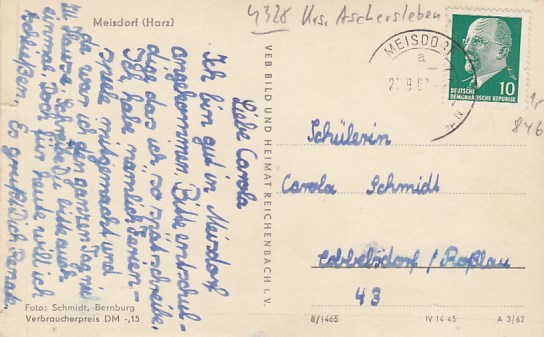 Meisdorf (Harz)
4328 Krs. Aschersleben
Liebe Carola
Ich bin gut in Meisdorf
angekommen. Bitte entschul-
dige das ich so spät schreibe.
Ich habe nämlich Ferien-
spiele mitgemacht und
da war ich den ganzen Tag nicht
zu Hause. Schreibe Du bitte auch
einmal. Doch für heute will ich
schließen. Es grüßt Dich Renate.
Foto: Schmidt, Bernburg
Verbraucherpreis DM -,15
VEB BILD UND HEIMAT REICHENBACH i. V.
MEISDORF
a
DEUTSCHE
DEMOKRATISCHE REPUBLIK
10
846
Schülerin
Carola Schmidt
Cobbelsdorf / Roßlau
43
8/1465
IV-14-45
A 3/62